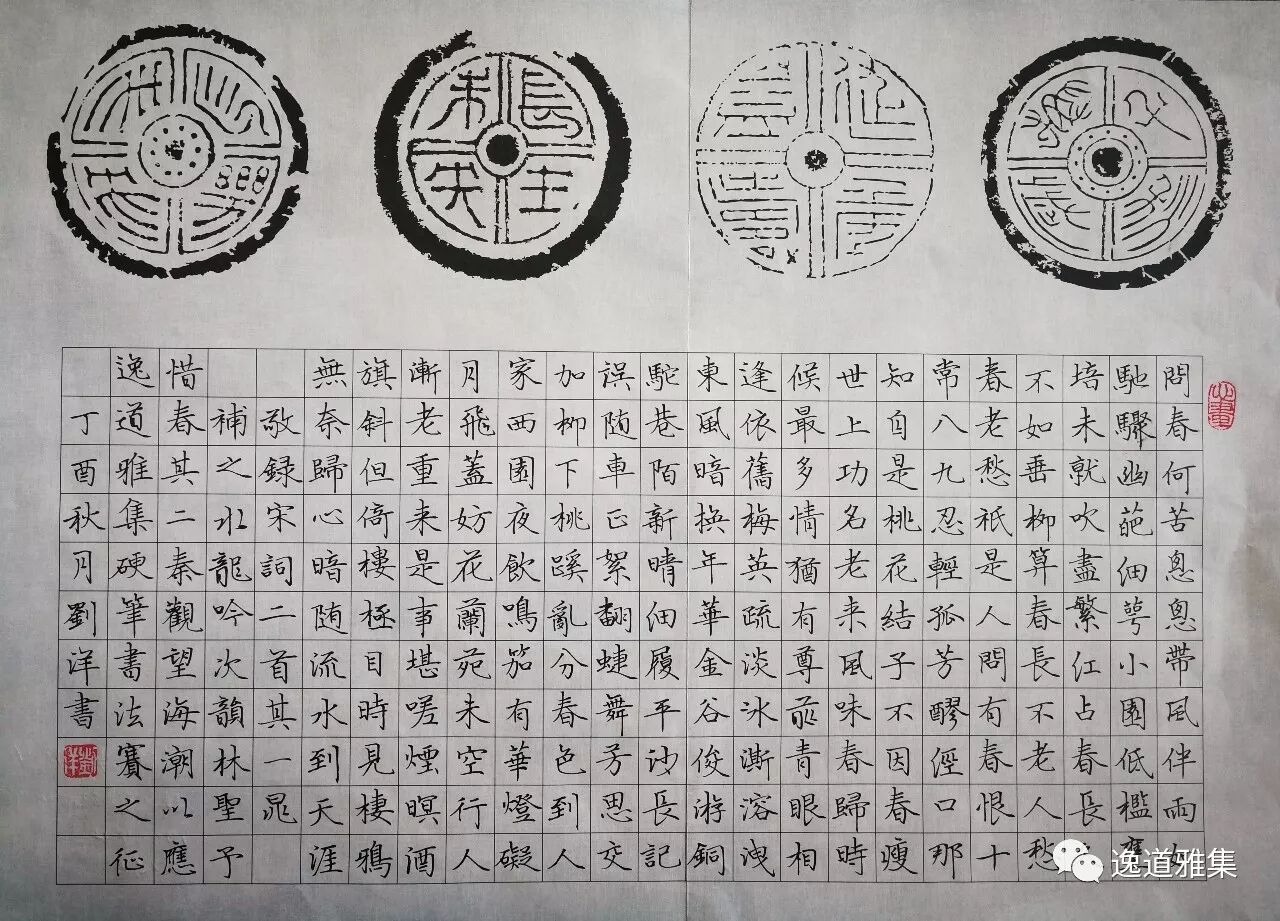 問春何苦悤悤帶風伴雨
馳驟幽葩細萼小園低檻
培未就吹盡繁紅占春長
不如垂柳算春長不老人愁
春老愁祇是人間有春恨十
常八九忍輕孤芳醪經口那
知自是桃花結子不因春瘦
世上功名老来風味春歸時
候最多情猶有尊前青眼相
逢依舊梅英疏淡冰澌溶洩
東風暗換年華金谷俊游銅
駝巷陌新晴細履平沙長記
誤随車正絮翻蜨舞芳思交
加柳下桃蹊亂分春色到人
家西園夜飲鳴笳有華燈礙
月飛蓋妨花蘭苑未空行人
漸老重来是事堪嗟煙暝酒
旗斜但倚樓極目時見棲鴉
無奈歸心暗随流水到天涯
敬録宋詞二首其一晁
補之水龍吟次韻林聖予
惜春其二秦觀望海潮以應
逸道雅集硬筆書法賽之征
丁酉秋月劉洋書
逸道雅集